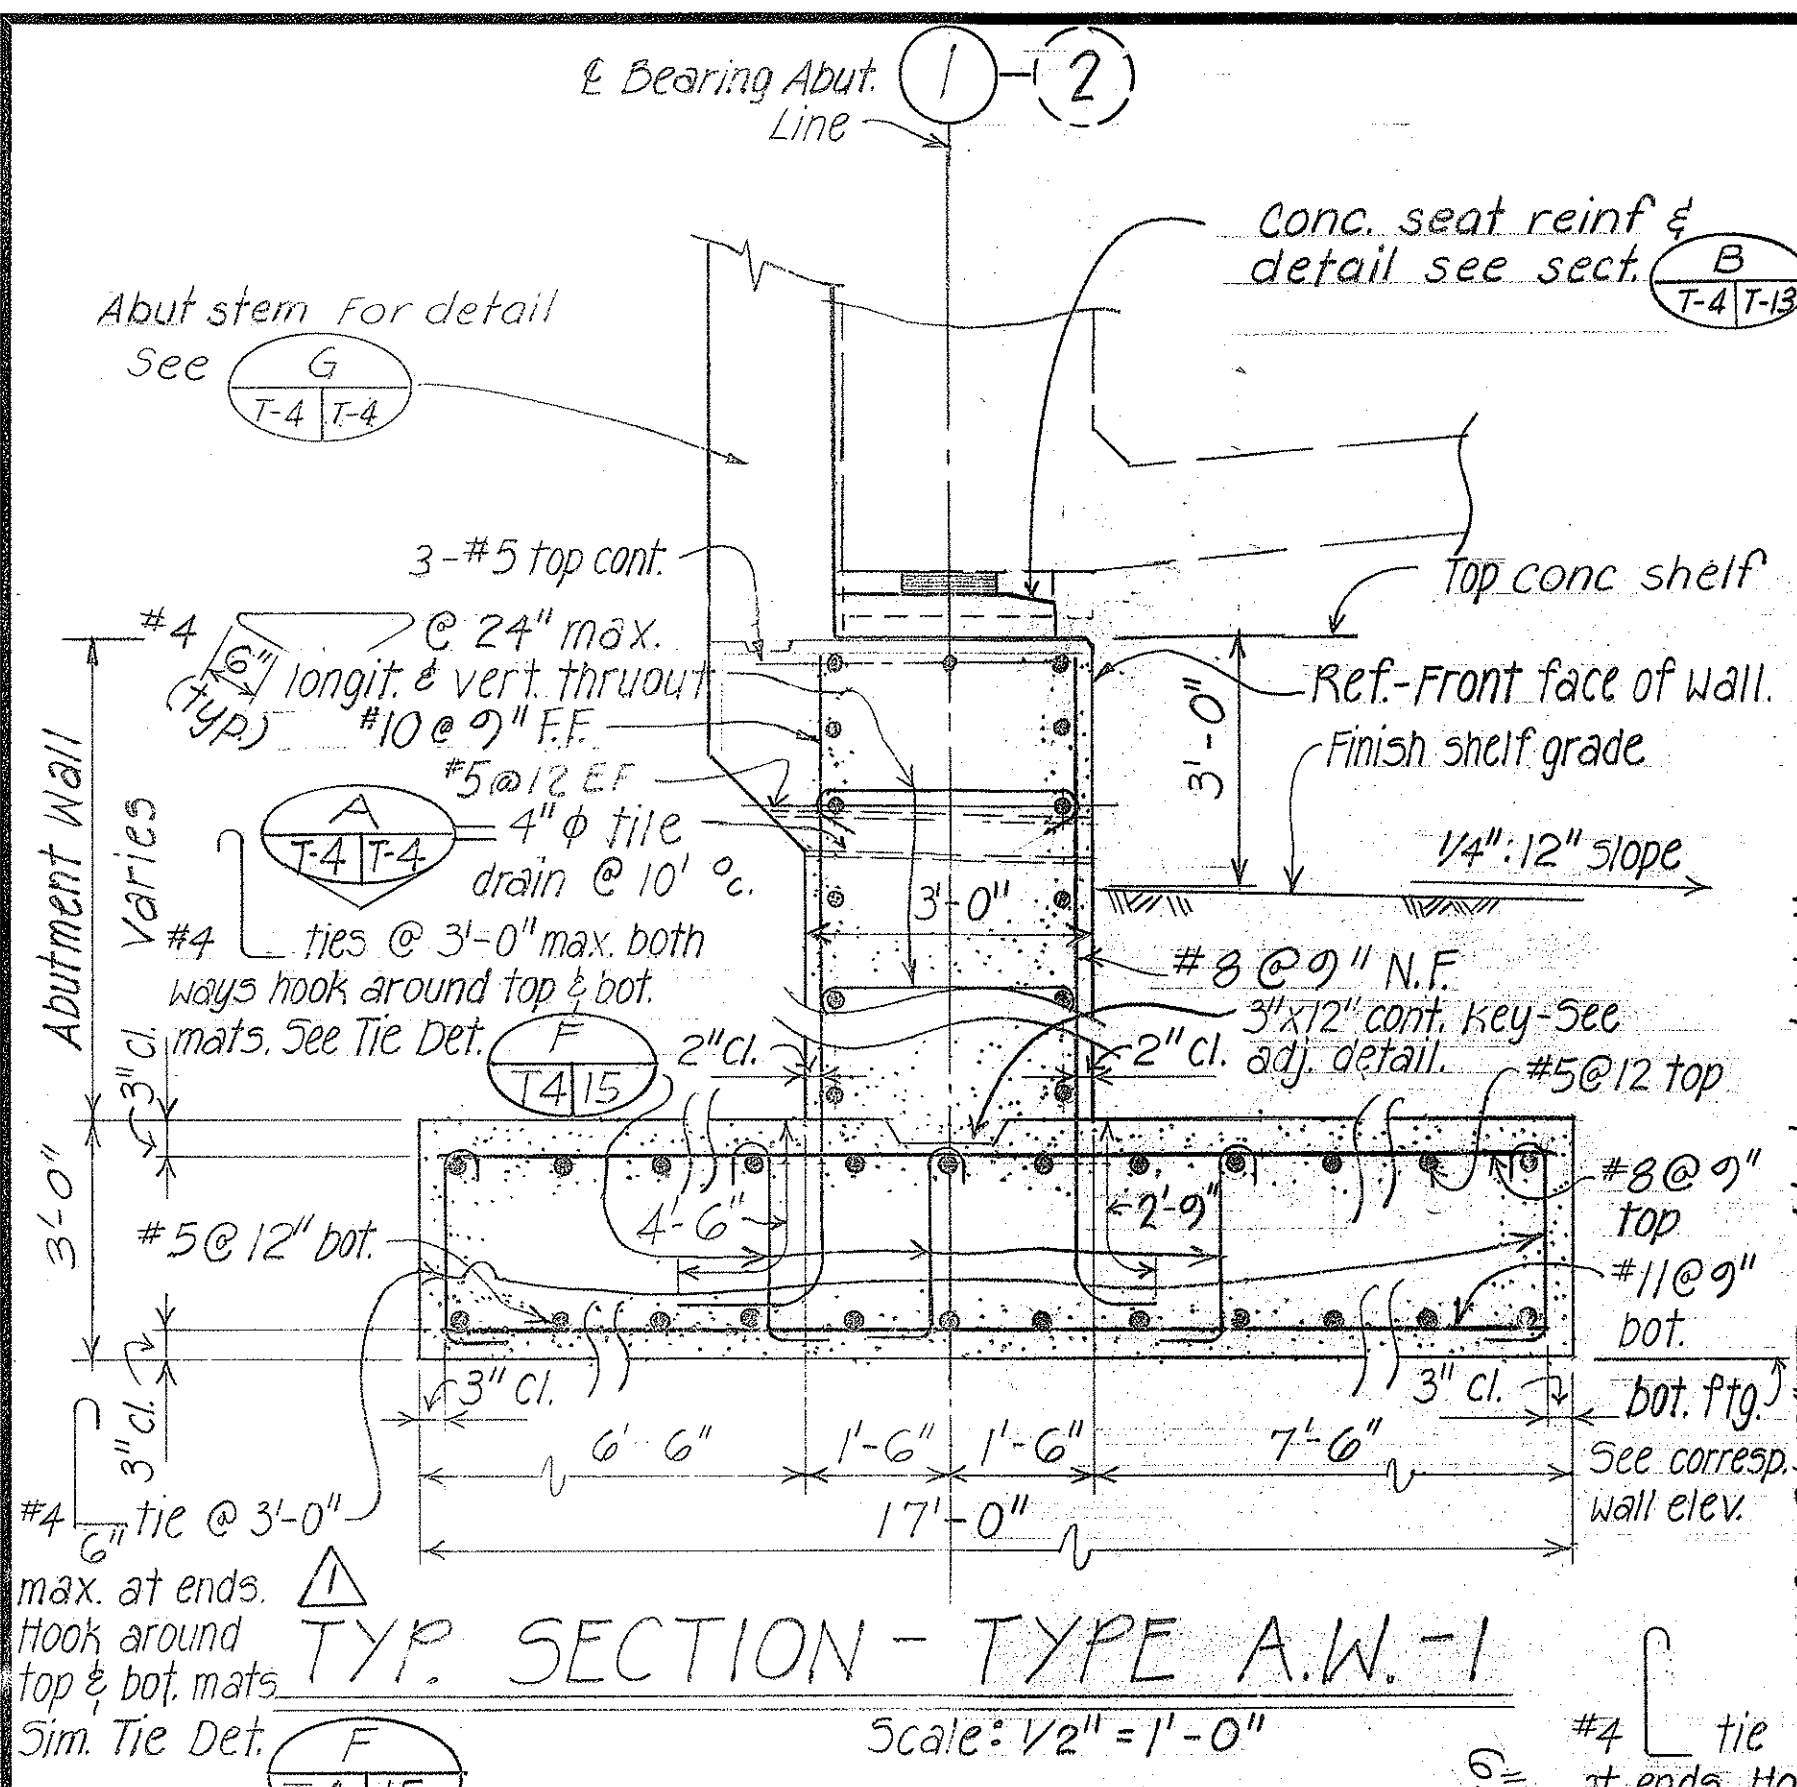 ℄ Bearing Abut. 1 - 2
Line
Conc. seat reinf &
detail see sect. B
T-4 T-13
Abut stem For detail
See G
T-4 T-4
3-#5 top cont.
Top conc shelf
#4 @ 24" max.
6" longit. & vert. thruout
(typ.)
#10 @ 9" F.F.
#5@12 EF
Ref.-Front face of wall.
3'-0"
Finish shelf grade
A
T-4 T-4
4" φ tile
drain @ 10' o.c.
1/4":12" slope
Abutment Wall
Varies
3'-0"
#4 ties @ 3'-0" max. both
ways hook around top & bot.
mats. See Tie Det. F
T4 15
#8 @ 9" N.F.
3"x12" cont. key-See
adj. detail.
2"cl.
2"cl.
3"cl.
#5@12 top
3'-0"
#8@9"
top
4'-6"
2'-9"
#5@12" bot.
#11@9"
bot.
3"cl.
3"cl.
3" cl.
bot. ftg.
See corresp.
wall elev.
6'-6"
1'-6"
1'-6"
7'-6"
17'-0"
#4 tie @ 3'-0"
6"
max. at ends.
Hook around
top & bot. mats
Sim. Tie Det. F
1
TYP. SECTION - TYPE A.W.-1
Scale: 1/2" = 1'-0"
#4 tie
6"
at ends. Ho